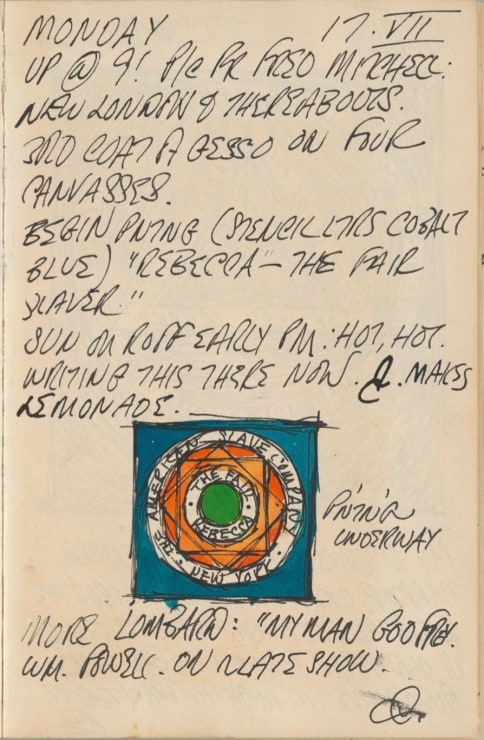 MONDAY 17·VII
UP @ 9! P/C FR FRED MITCHELL:
NEW LONDON & THEREABOUTS.
3RD COAT A GESSO ON FOUR
CANVASSES.
BEGIN PNTNG (STENCIL LTRS COBALT
BLUE) "REBECCA — THE FAIR
SLAVER."
SUN ON ROOF EARLY PM: HOT, HOT.
WRITING THIS THERE NOW. MAKES
LEMONADE.
THE AMERICAN SLAVE COMPANY
· NEW YORK ·
· THE FAIR ·
REBECCA
P'NT'N'G
UNDERWAY
MORE LOMBARD: "MY MAN GODFREY.
WM. POWELL. ON LATE SHOW.